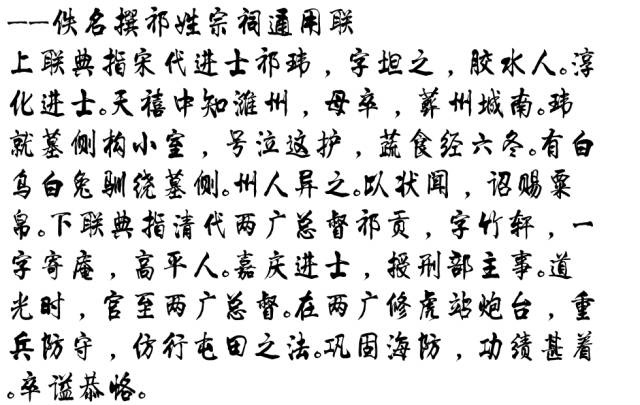 ——佚名撰祁姓宗祠通用联
上联典指宋代进士祁玮，字坦之，胶水人。淳
化进士。天禧中知潍州，母卒，葬州城南。玮
就墓侧构小室，号泣这护，蔬食经六冬。有白
乌白兔驯绕墓侧。州人异之。以状闻，诏赐粟
帛。下联典指清代两广总督祁贡，字竹轩，一
字寄庵，高平人。嘉庆进士，授刑部主事。道
光时，官至两广总督。在两广修虎站炮台，重
兵防守，仿行屯田之法。巩固海防，功绩甚着
。卒谥恭恪。